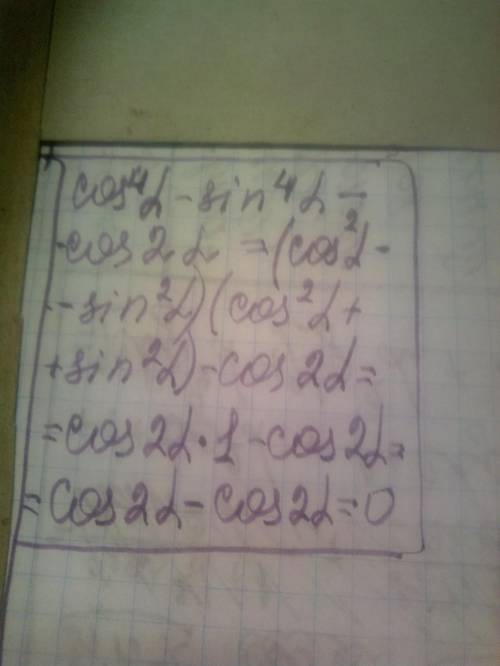 cos⁴α - sin⁴α -
- cos 2α = (cos²α -
- sin²α)(cos²α +
+ sin²α) - cos 2α =
= cos 2α · 1 - cos 2α =
= cos 2α - cos 2α = 0